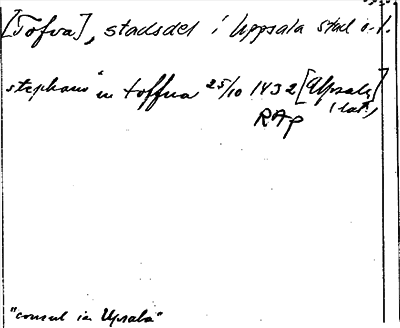 [Tofva], stadsdel i Uppsala stad o. l.
stephano in toffua 25/10 1432 [Upsala]
(lat.)
RAp
"consul in Upsala"